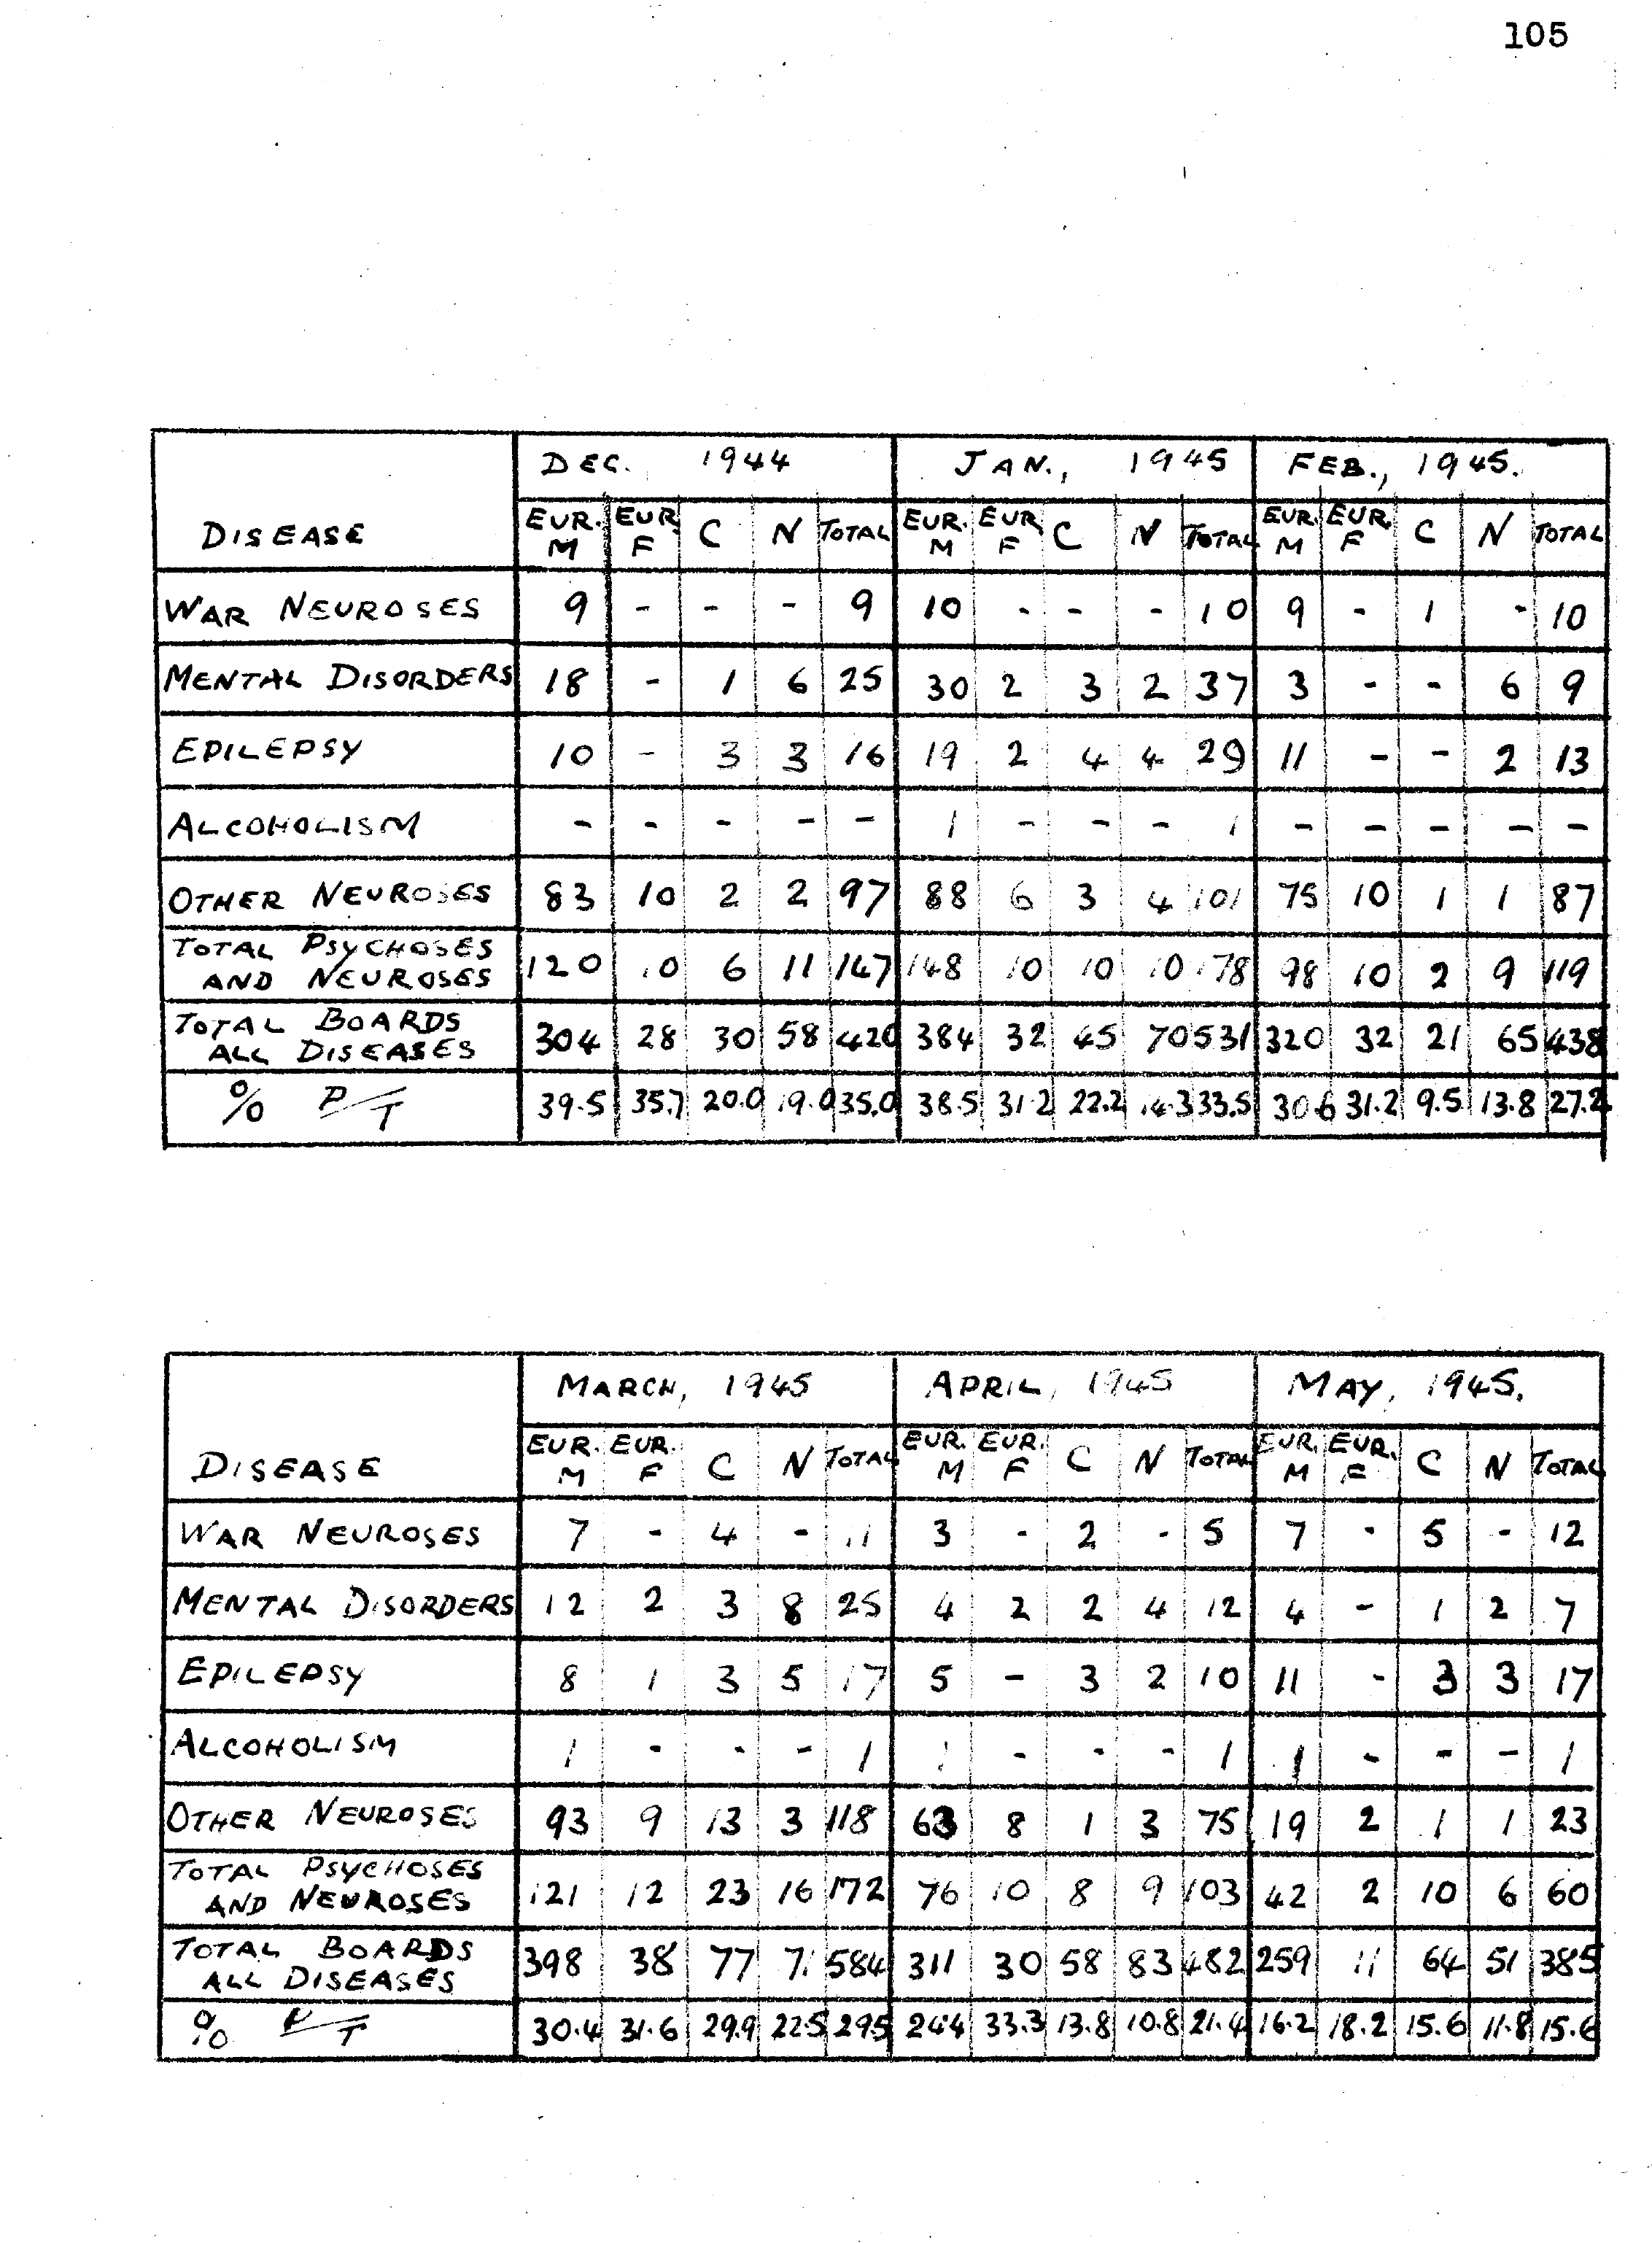 105
DEC. 1944 JAN., 1945 FEB., 1945.
DISEASE EUR. M EUR. F C N TOTAL EUR. M EUR. F C N TOTAL EUR. M EUR. F C N TOTAL
WAR NEUROSES 9 - - - 9 10 - - - 10 9 - 1 - 10
MENTAL DISORDERS 18 - 1 6 25 30 2 3 2 37 3 - - 6 9
EPILEPSY 10 - 3 3 16 19 2 4 4 29 11 - - 2 13
ALCOHOLISM - - - - - 1 - - - 1 - - - - -
OTHER NEUROSES 83 10 2 2 97 88 6 3 4 101 75 10 1 1 87
TOTAL PSYCHOSES
AND NEUROSES 120 10 6 11 147 148 10 10 10 178 98 10 2 9 119
TOTAL BOARDS
ALL DISEASES 304 28 30 58 420 384 32 45 70 531 320 32 21 65 438
% P/T 39.5 35.7 20.0 19.0 35.0 38.5 31.2 22.2 14.3 33.5 30.6 31.2 9.5 13.8 27.2
MARCH, 1945 APRIL, 1945 MAY, 1945.
DISEASE EUR. M EUR. F C N TOTAL EUR. M EUR. F C N TOTAL EUR. M EUR. F C N TOTAL
WAR NEUROSES 7 - 4 - 11 3 - 2 - 5 7 - 5 - 12
MENTAL DISORDERS 12 2 3 8 25 4 2 2 4 12 4 - 1 2 7
EPILEPSY 8 1 3 5 17 5 - 3 2 10 11 - 3 3 17
ALCOHOLISM 1 - - - 1 1 - - - 1 1 - - - 1
OTHER NEUROSES 93 9 13 3 118 63 8 1 3 75 19 2 1 1 23
TOTAL PSYCHOSES
AND NEUROSES 121 12 23 16 172 76 10 8 9 103 42 2 10 6 60
TOTAL BOARDS
ALL DISEASES 398 38 77 71 584 311 30 58 83 482 259 11 64 51 385
% P/T 30.4 31.6 29.9 22.5 29.5 24.4 33.3 13.8 10.8 21.4 16.2 18.2 15.6 11.8 15.6